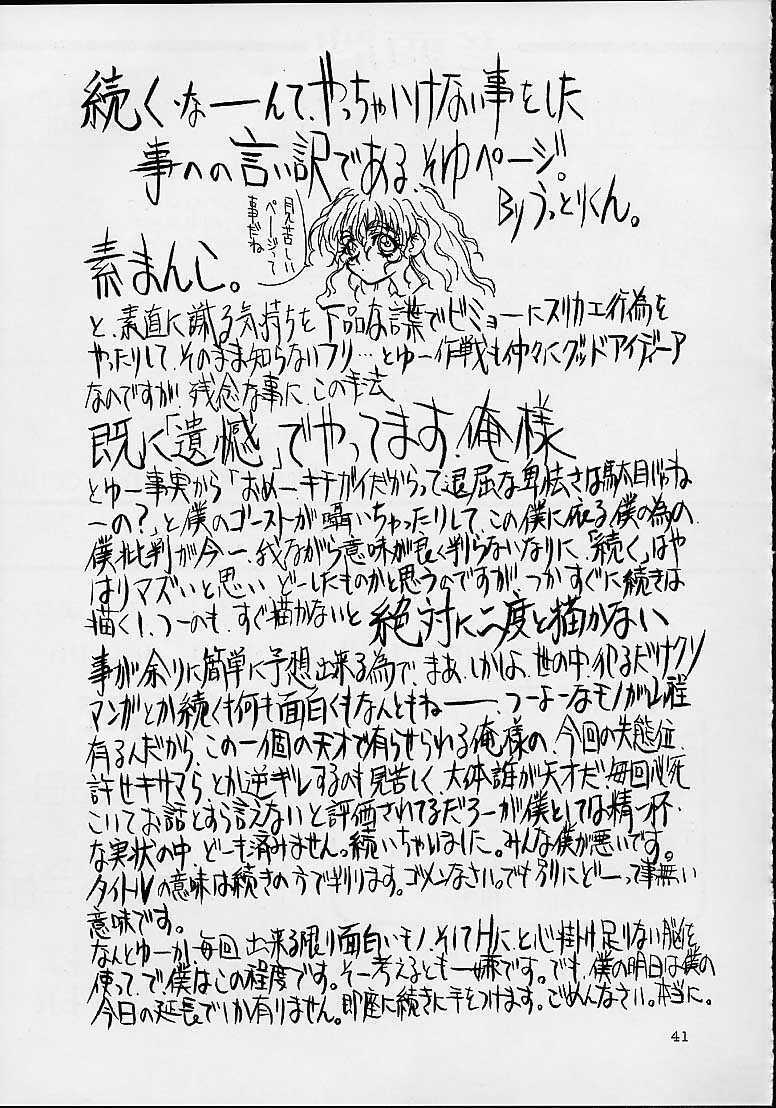 続く、なーーんて、やっちゃいけない事をした
事への言い訳である、そゆページ。
Byうっとりくん。
見苦しい
ページって
事だね
素まんじ。
と、素直に謝る気持ちを下品な言葉でビミョーにスリカエ行為を
やったりして、そのまま知らないフリ…とゆー作戦も仲々にグッドアイディーア
なのですが、残念な事に、この手法
既に「遺憾」でやってます、俺様
とゆー事実から「おめーキチガイだからって退屈な卑怯さは駄目じゃね
ーの？」と僕のゴーストが囁いちゃったりして、この僕に依る僕の為の、
僕批判が今一、我ながら意味が良く判らないなりに、「続く」はや
はりマズいと思い、どーしたものかと思うのですが、つかすぐに続きは
描く!、つーのも、すぐ描かないと絶対に二度と描かない
事が余りに簡単に予想出来る為で、まあ、しかしよ、世の中、化るだけクソ
マンガとか続くも何も面白くもなんともねーーー、つーよーなモノが山程
有るんだから、この一個の天才で有らせられる俺様の、今回の失態位、
許せキサマら、とか逆ギレするのも見苦しく、大体誰が天才だ、毎回必死
こいてお話とすら言えないと評価されてるだろーが僕としては精一杯、
な実状の中、どーも済みません。続いちゃいました。みんな僕が悪いです。
タイトルの意味は続きの方で判ります。ゴメンなさい。でも別にどーって事無い
意味です。
なんとゆーか、毎回、出来る限り面白いモノ、そしてHに、と心掛け足りない脳を
使って、で僕はこの程度です。そー考えるとも一嫌です。でも、僕の明日は僕の
今日の延長でしか有りません。即座に続きに手をつけます。ごめんなさい。本当に。
41